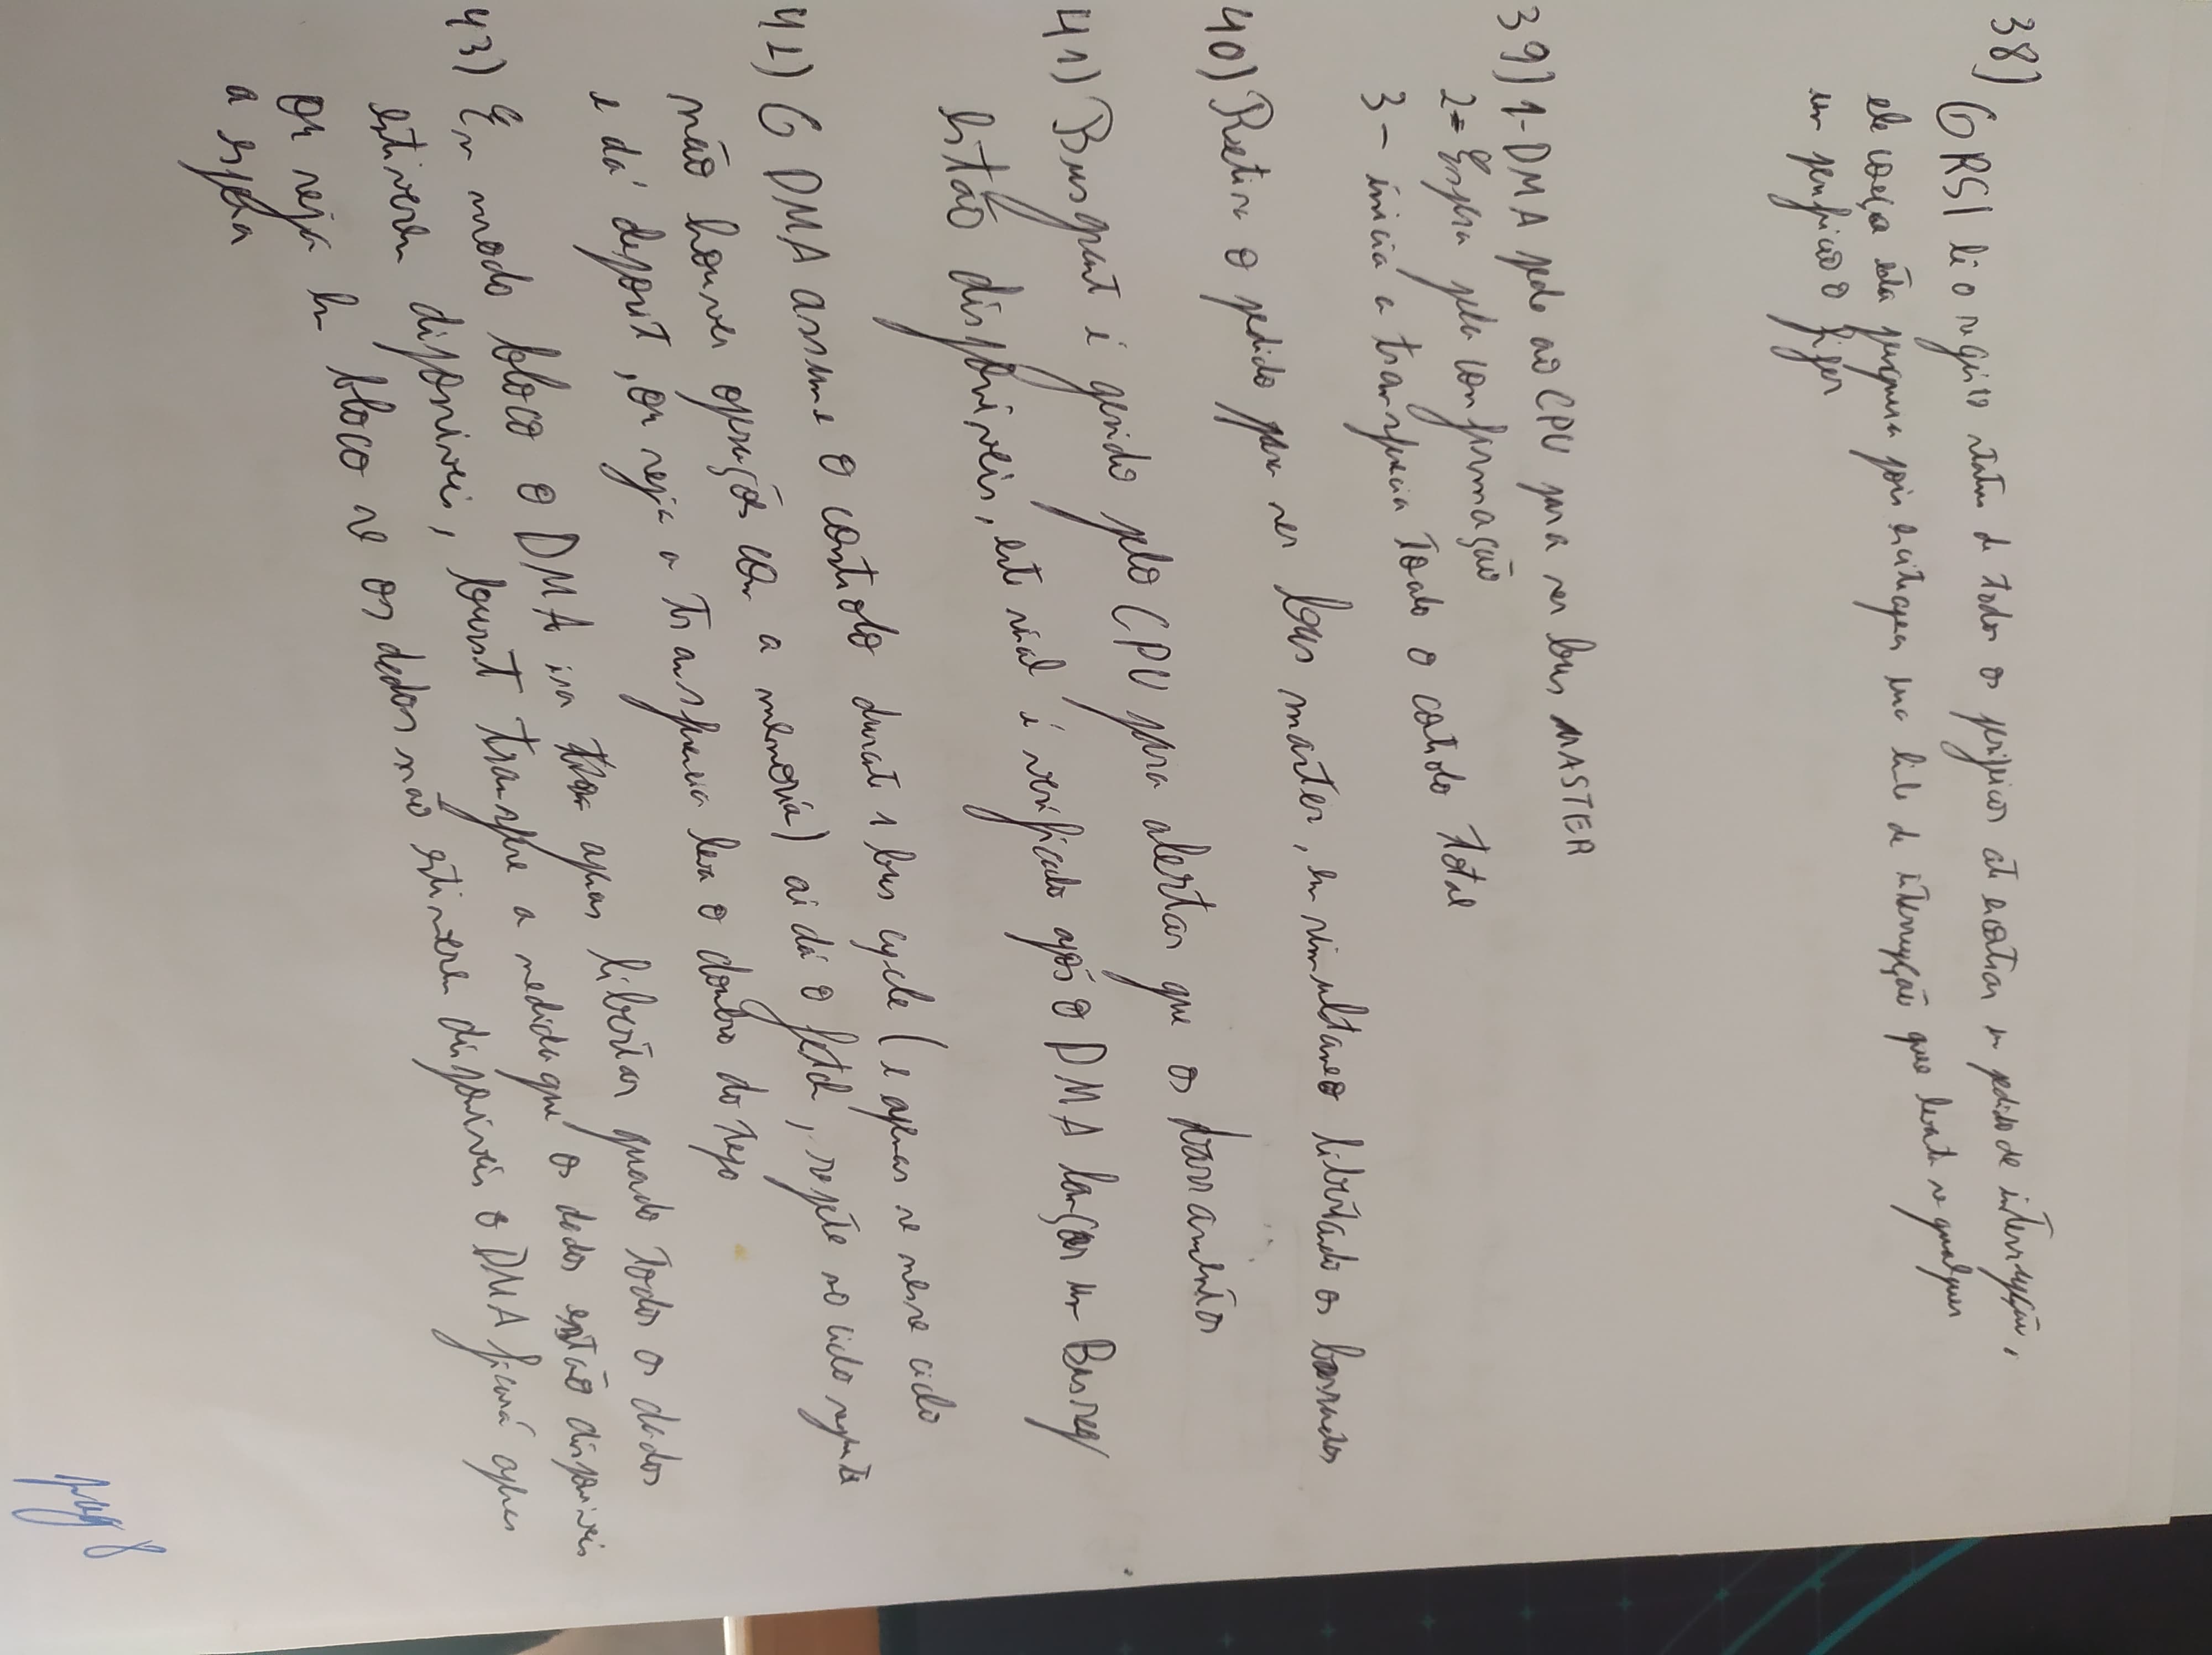 38)
O RSI lê o registo status de todos os periféricos até encontrar um pedido de interrupção,
ele começa esta pesquisa pois existe apenas uma linha de interrupção que levanta se qualquer
um periférico o fizer
39) 1-DMA pede ao CPU para ser bus MASTER
2- Espera pela confirmação
3- inicia a transferencia tendo o controlo total
40) Retira o pedido para ser bus master, em simultaneo libertando os barramentos
41) Busgrant é gerido pelo CPU para alertar que os barramentos
estão disponiveis, este sinal é verificado após o DMA lançar um Busreq
42) O DMA assume o controlo durante 1 bus cycle (e apenas se nesse ciclo
não houver operações com a memoria) ai dá o fetch, repete no ciclo seguinte
e dá deposit, ou seja a transferencia leva o dobro do tempo
43) Em modo bloco o DMA ira apenas libertar quando todos os dados
estiverem diponiveis, burst transfere a medida que os dados estão disponiveis
ou seja em bloco se os dados não estiverem disponiveis o DMA ficará apenas
a espera
pag 8